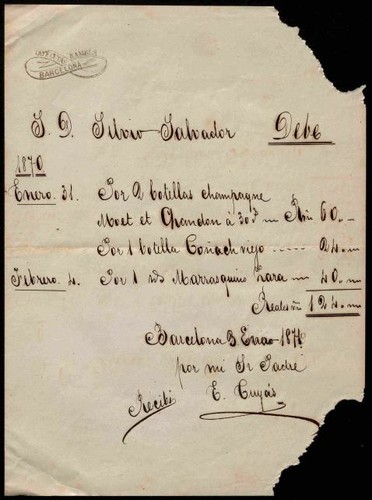 BARCELONA
S. D. Silvio Salvador Debe
1870
Enero. 31. Por 2 botellas champagne
Moet et Chandon à 30 r. Rvn 60.
Por 1 botella Coñach viejo ..... 24.
Febrero. 4. Por 1 id Marrasquino Zara 40.
Reales vn 124.
Barcelona 3 Enero 1871
por mi Sr Padre
Recibi E. Cuyás